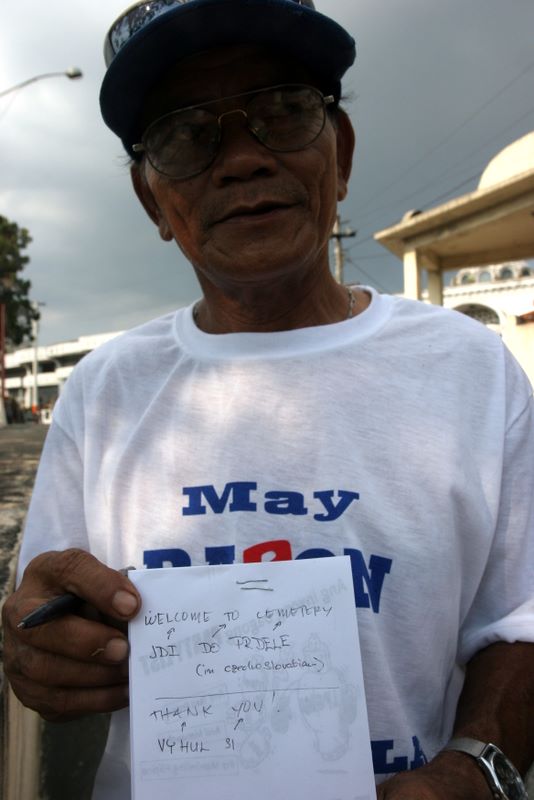 May
WELCOME TO CEMETERY
JDI DO PRDELE
(in czechoslovakian)
THANK YOU!
VYHUL SI